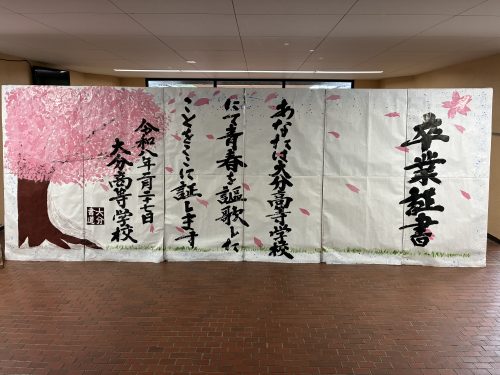 卒業証書
あなたは大分高等学校
にて青春を謳歌した
ことをここに証します
令和八年二月二十一日
大分高等学校
大分
書道